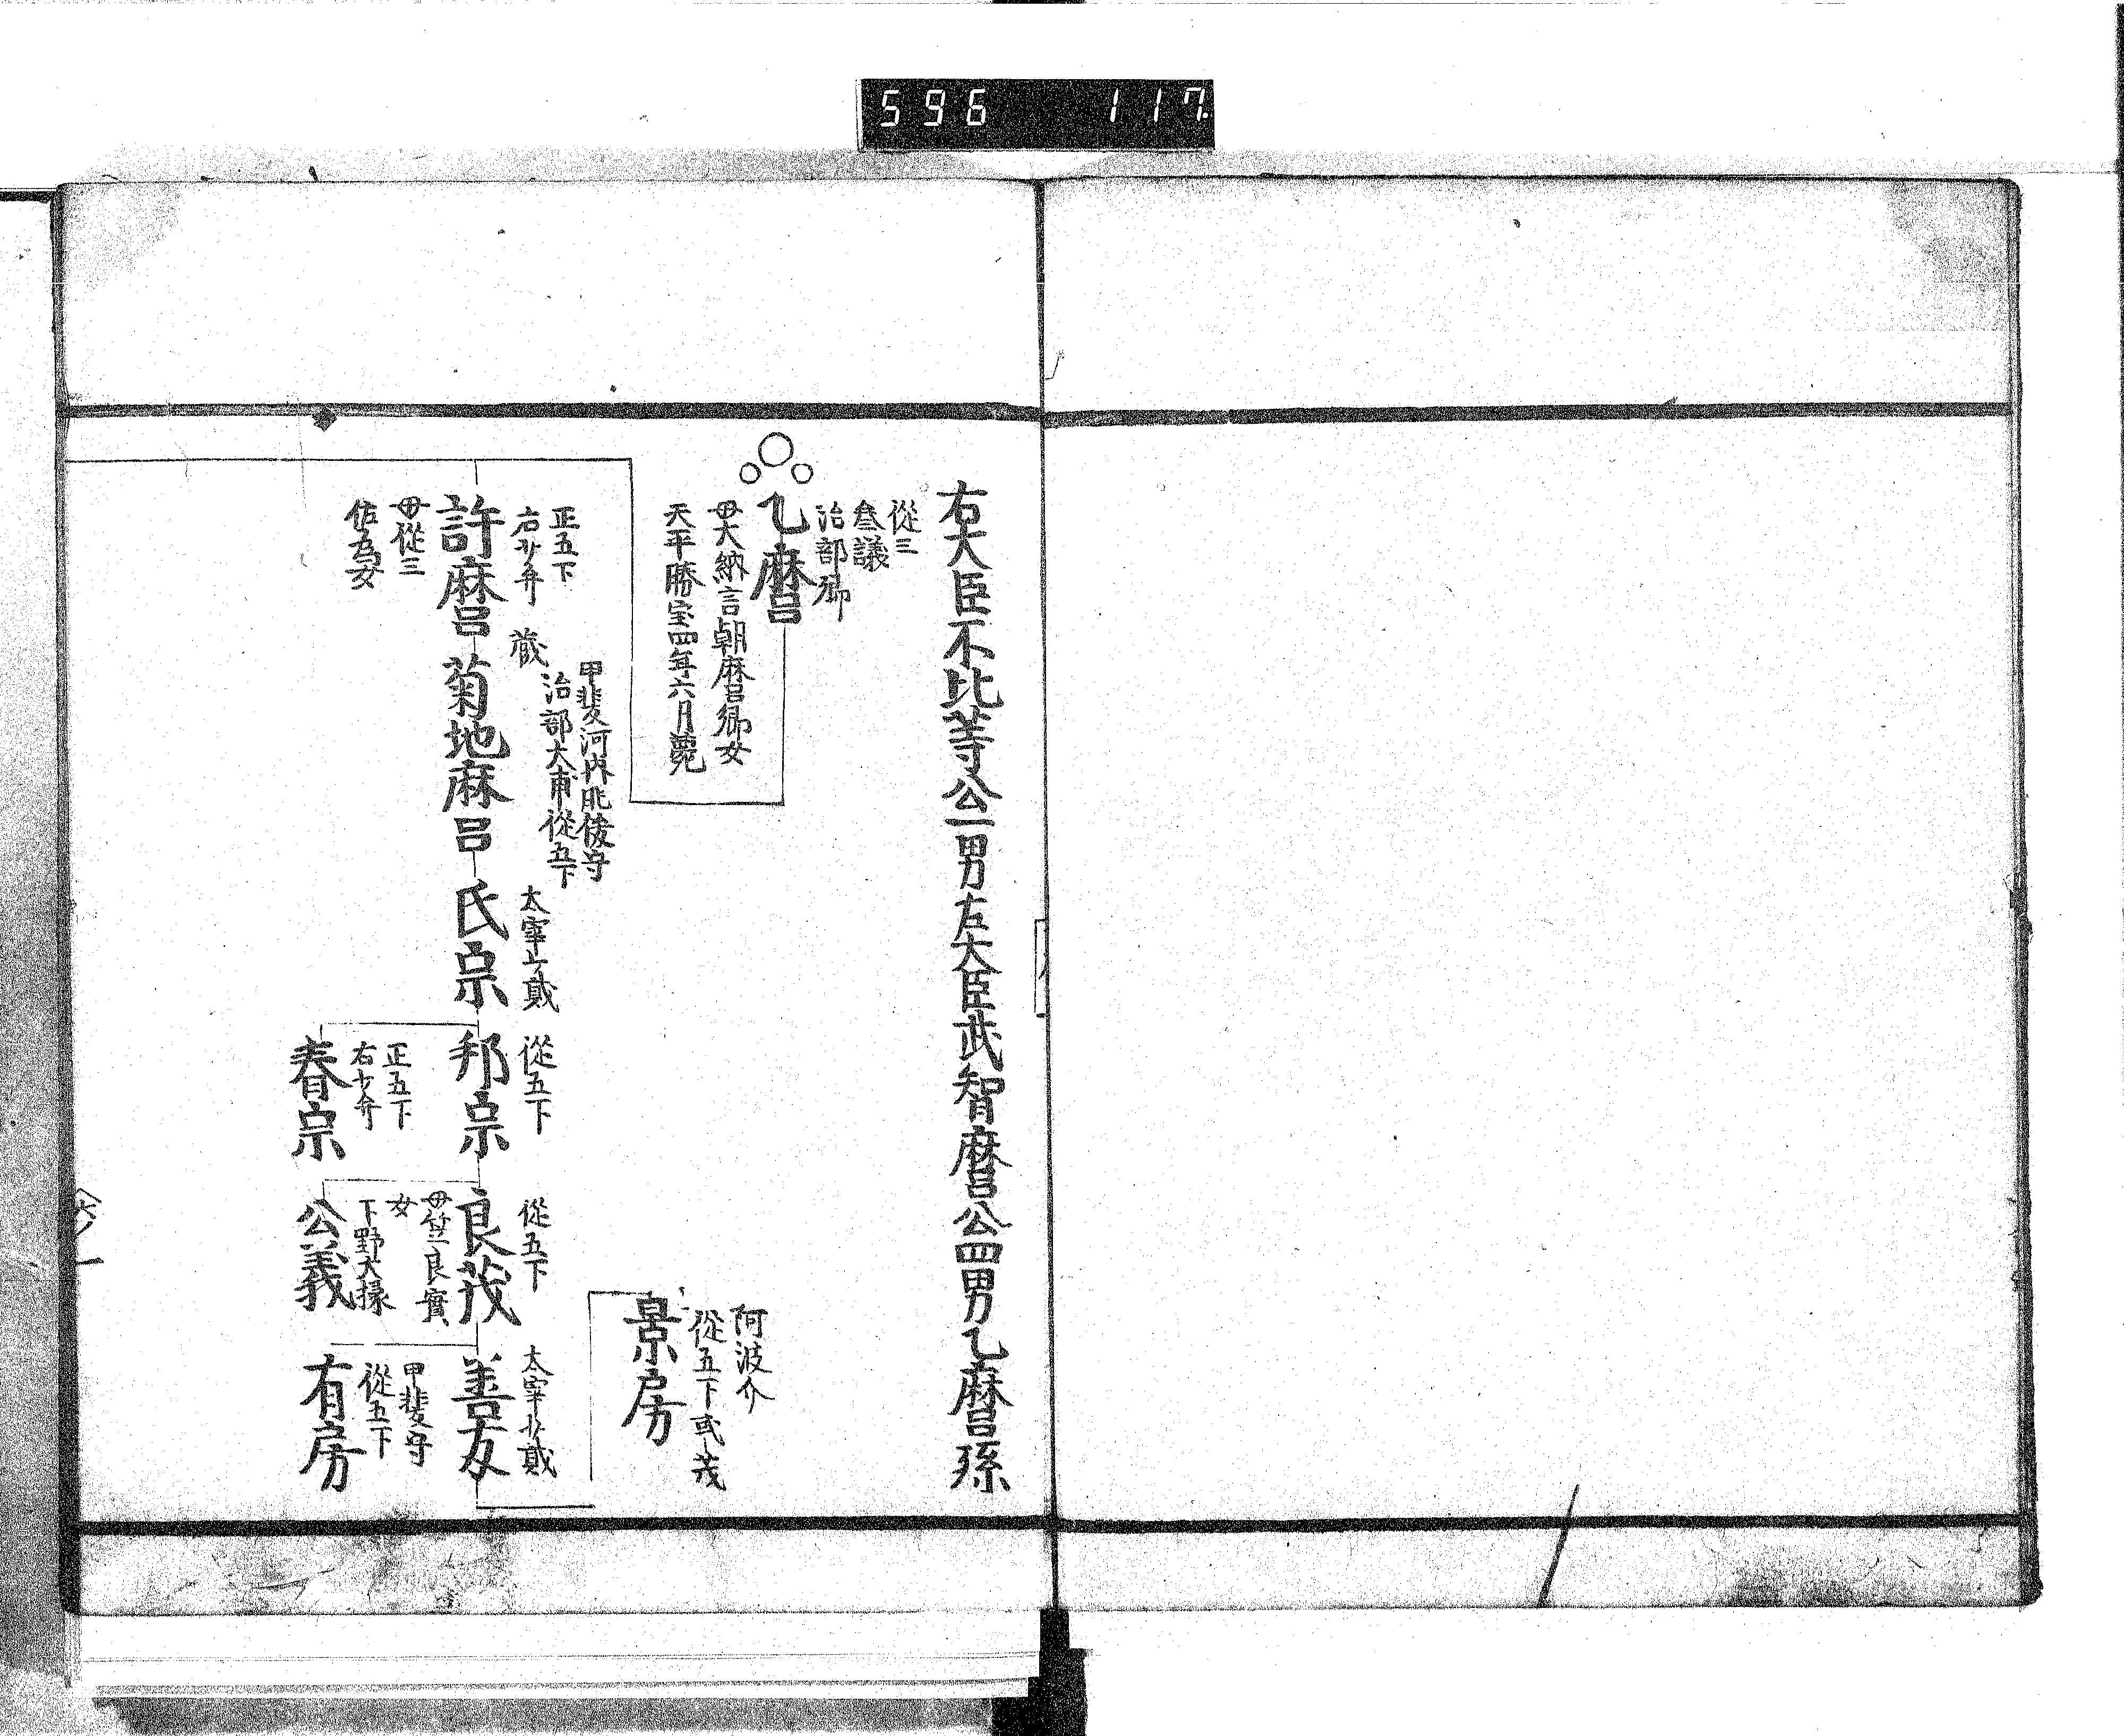 596 117
右大臣不比等公一男左大臣武智麿公四男乙麿孫
從三
叅議
治部卿
乙麿
毋大納言朝麿卿女
天平勝宝四年六月薨
正五下
右少弁
許麿
毋從三
佐為女
蔵
甲斐河内肥後守
治部大甫從五下
菊地麻呂
太宰少貳
氏宗
從五下
邦宗
正五下
右少弁
春宗
從五下
良茂
毋笠良實
女
下野大掾
公義
太宰少貳
善友
甲斐守
從五下
有房
阿波介
從五下或茂
景房